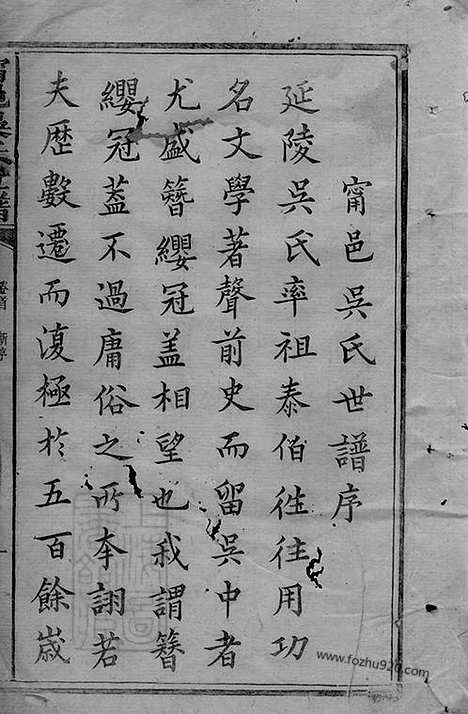 甯邑吳氏世譜序
延陵吳氏率祖泰伯徃徃用功
名文學著聲前史而留吳中者
尤盛簪纓冠盖相望也我謂簪
纓冠葢不過庸俗之所夲詡若
夫歷數遷而復極於五百餘歲
卷首
www.fozhu920.com